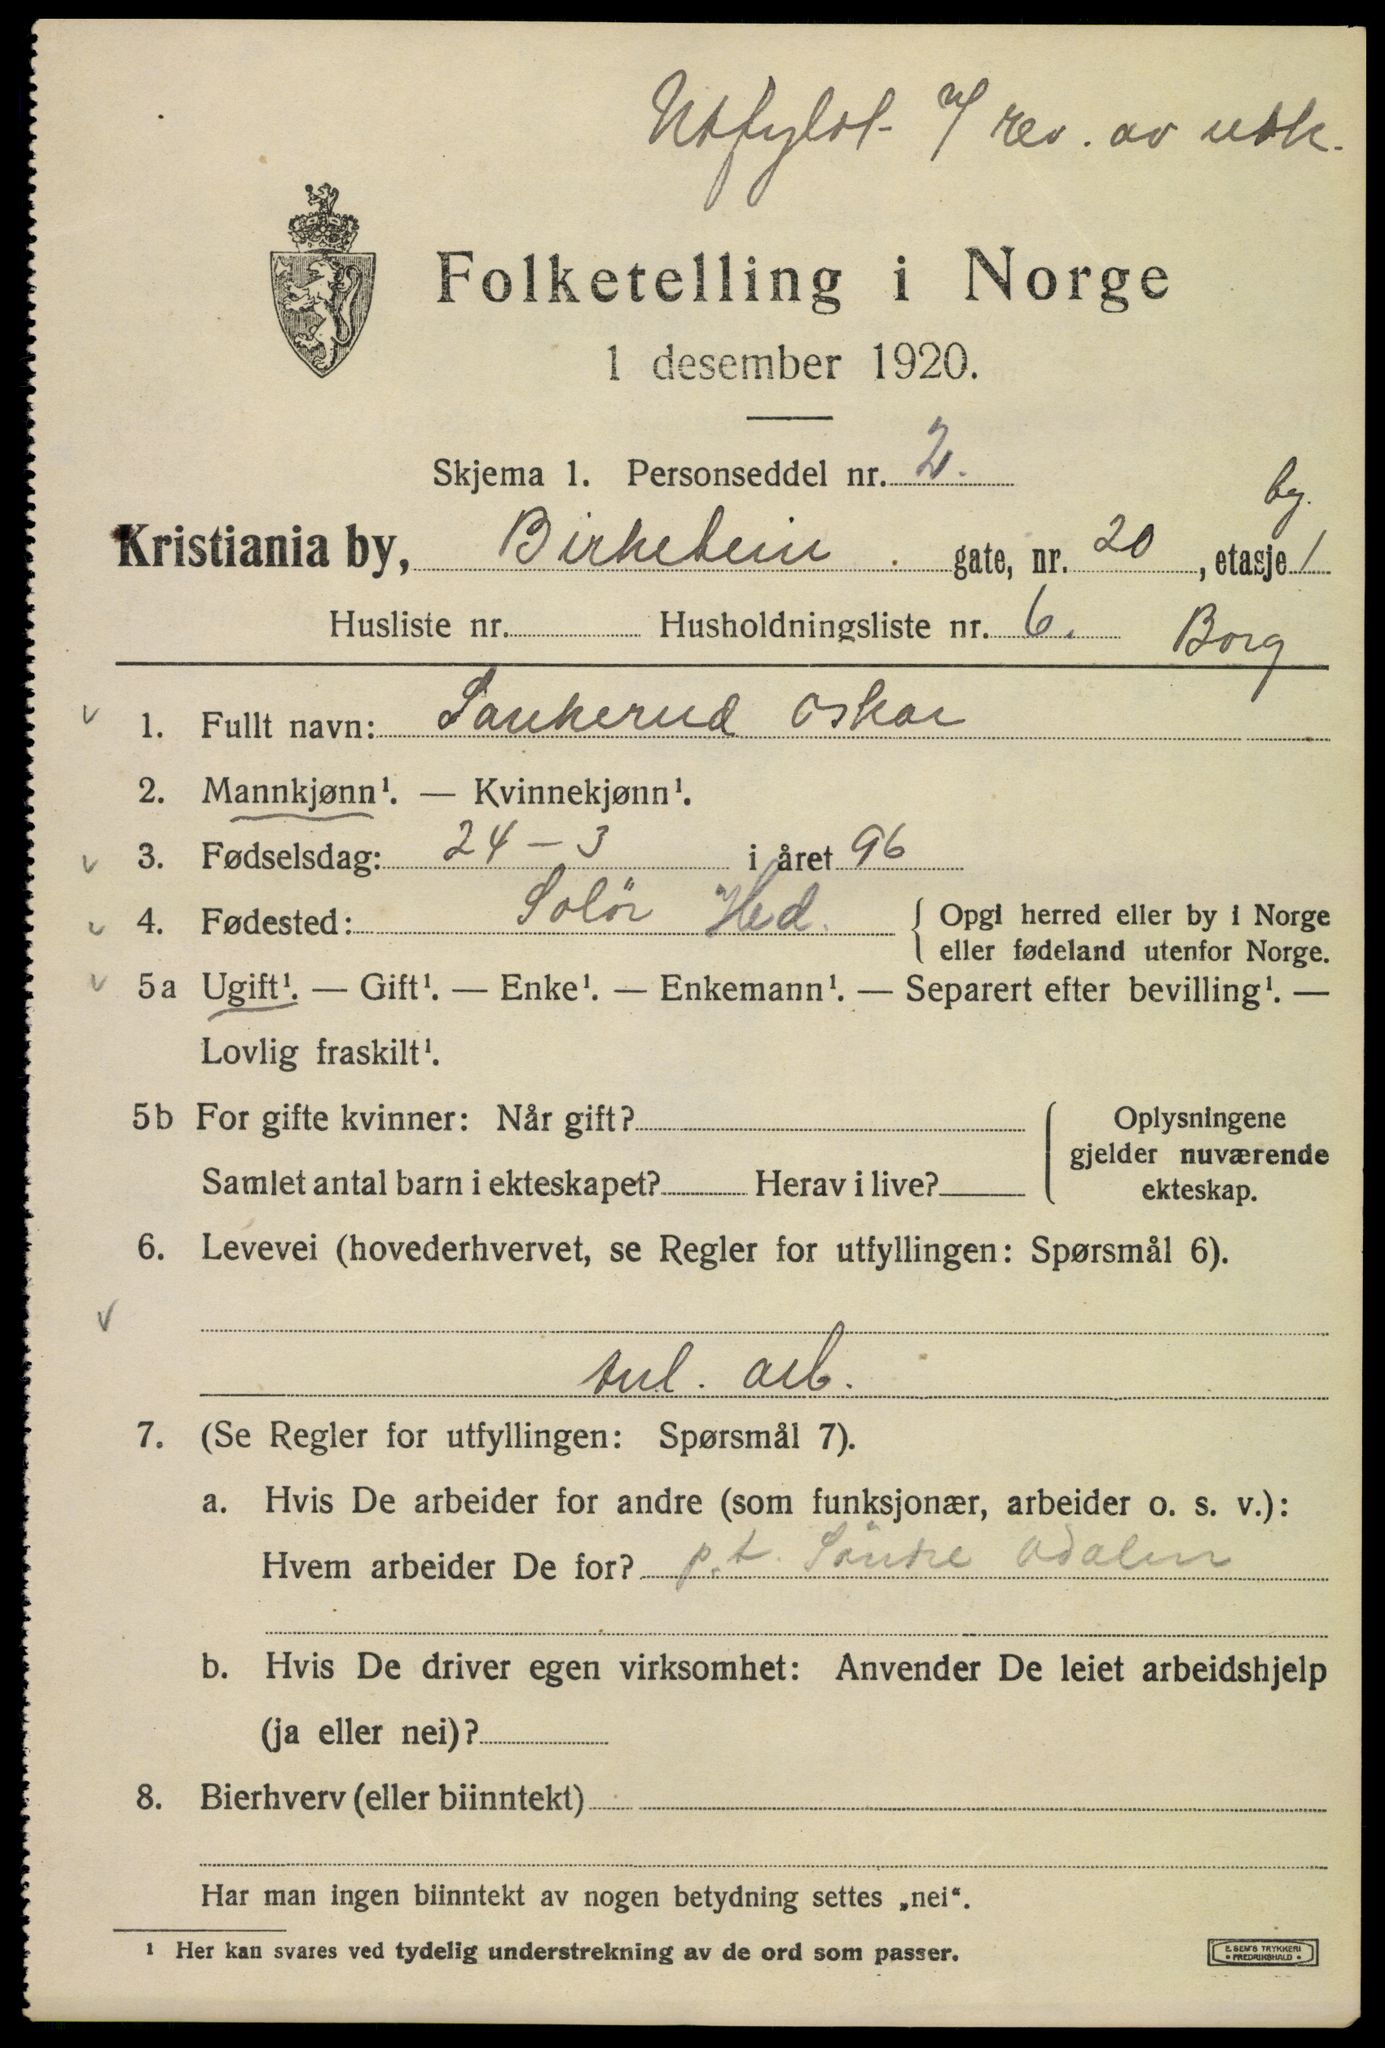 Utfylt v/ rev. av utk.
Folketelling i Norge
1 desember 1920.
Skjema 1. Personseddel nr. 2.
by.
Kristiania by, Birkebein gate, nr. 20, etasje 1
Husliste nr. Husholdningsliste nr. 6. Borg
1. Fullt navn: Sankerud Oskar
2. Mannkjønn¹. — Kvinnekjønn¹.
3. Fødselsdag: 24-3 i året 96
4. Fødested: Solör Hed. { Opgi herred eller by i Norge
eller fødeland utenfor Norge.
5a Ugift¹. — Gift¹. — Enke¹. — Enkemann¹. — Separert efter bevilling¹. —
Lovlig fraskilt¹.
5b For gifte kvinner: Når gift?
Samlet antal barn i ekteskapet? Herav i live?
Oplysningene
gjelder nuværende
ekteskap.
6. Levevei (hovederhvervet, se Regler for utfyllingen: Spørsmål 6).
arb.
7. (Se Regler for utfyllingen: Spørsmål 7).
a. Hvis De arbeider for andre (som funksjonær, arbeider o. s. v.):
Hvem arbeider De for? p.t. Söndre Odalen
b. Hvis De driver egen virksomhet: Anvender De leiet arbeidshjelp
(ja eller nei)?
8. Bierhverv (eller biinntekt)
Har man ingen biinntekt av nogen betydning settes „nei“.
¹ Her kan svares ved tydelig understrekning av de ord som passer.
E. SEM'S TRYKKERI
• FREDRIKSHALD •